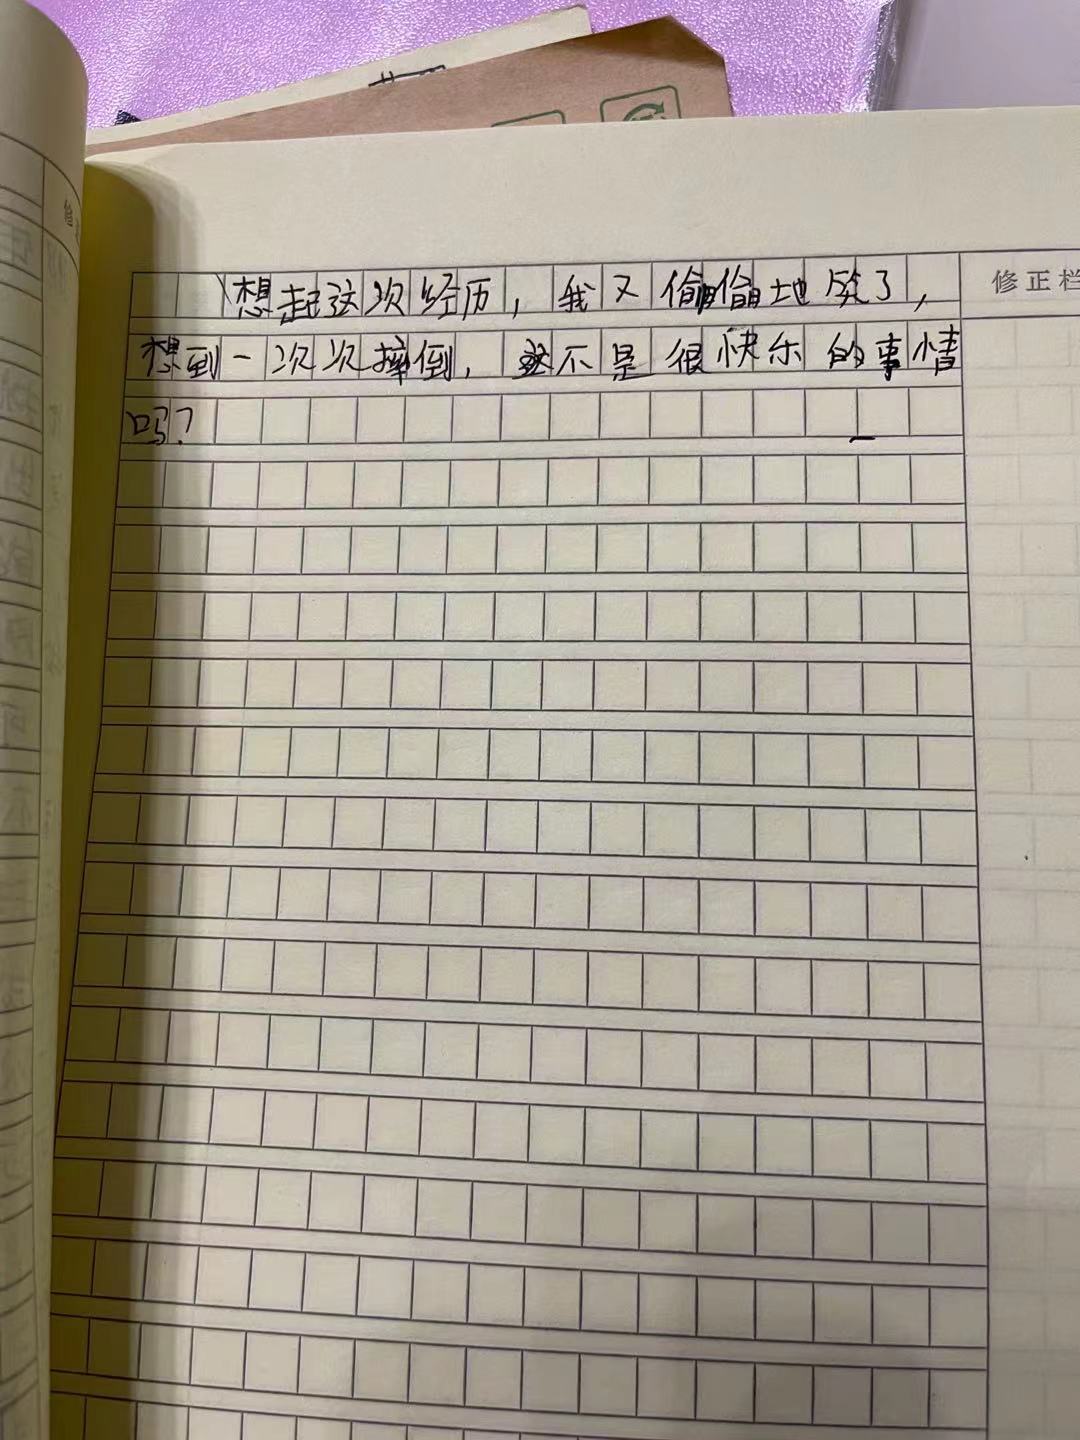 想起这次经历，我又偷偷地笑了，
想到一次次摔倒，这不是很快乐的事情
吗？
修正栏